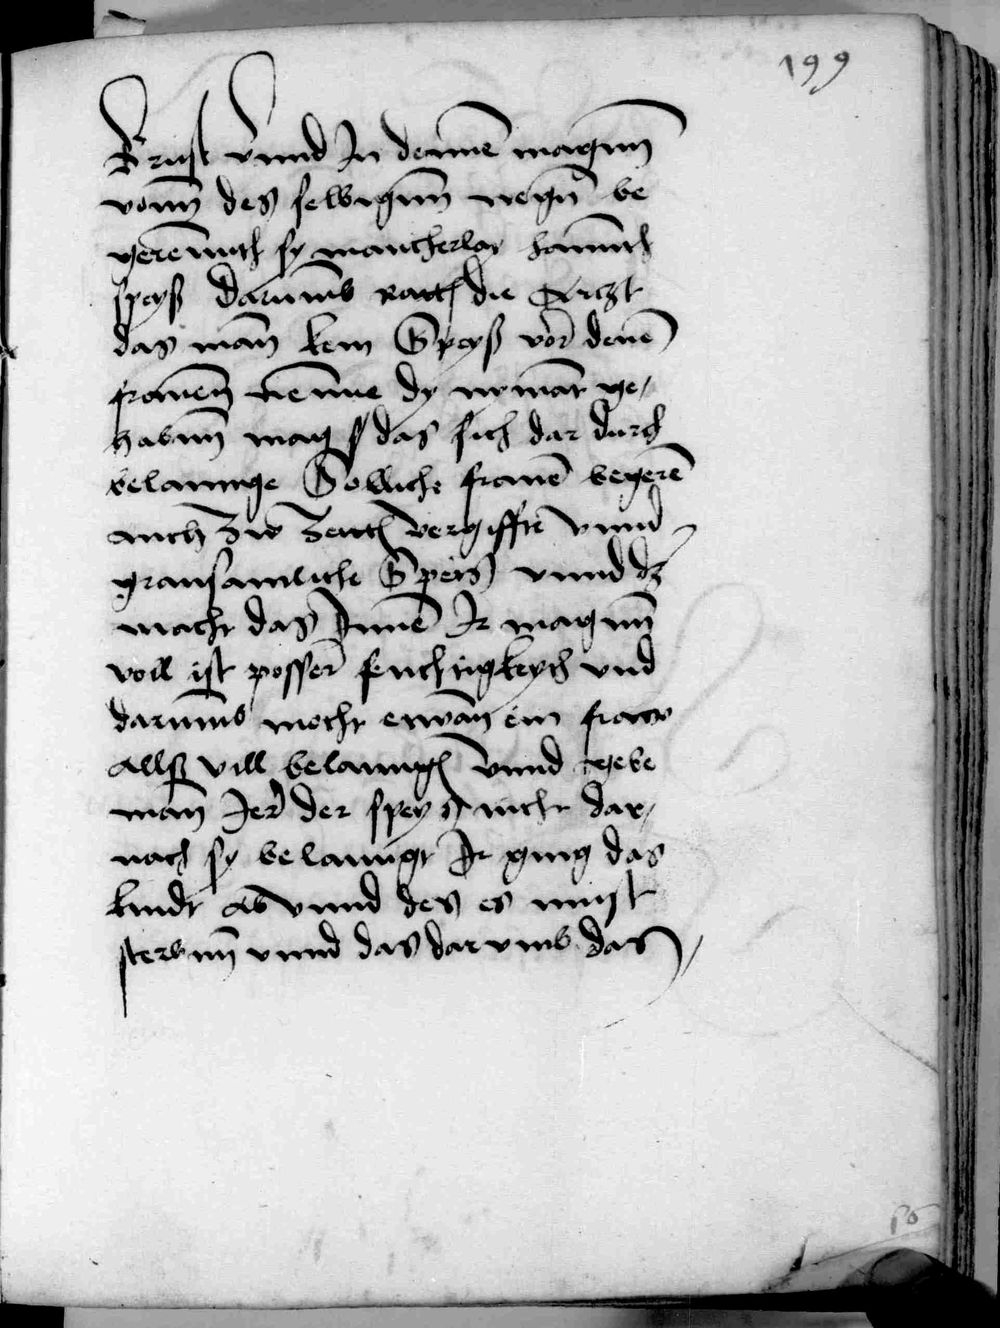 199
Brust vnnd In dennē magnn
vonn des selbigenn wegn be
gerenntt sy mancherlay hanntt
speyß Darumb ratt die Arczt
das man kein Speyß vor denē
frawen nenne dy nymant ge
habnn mag das sich dar durch
belannge Sollich frawē begerē
auch zw Zeitt vergiffte vnnd
grausamliche Speis vnnd dz
macht das Innē Ir magnn
voll ist posser feuchtigkeyt vnd
darumb mocht etwan ein fraw
allß vill belanngt vnnd gebe
man Jer der speyß nicht dar
nach sy belanngt Ir ging das
kindt ab vnnd des es must
sterbnn vnnd das darvmb das